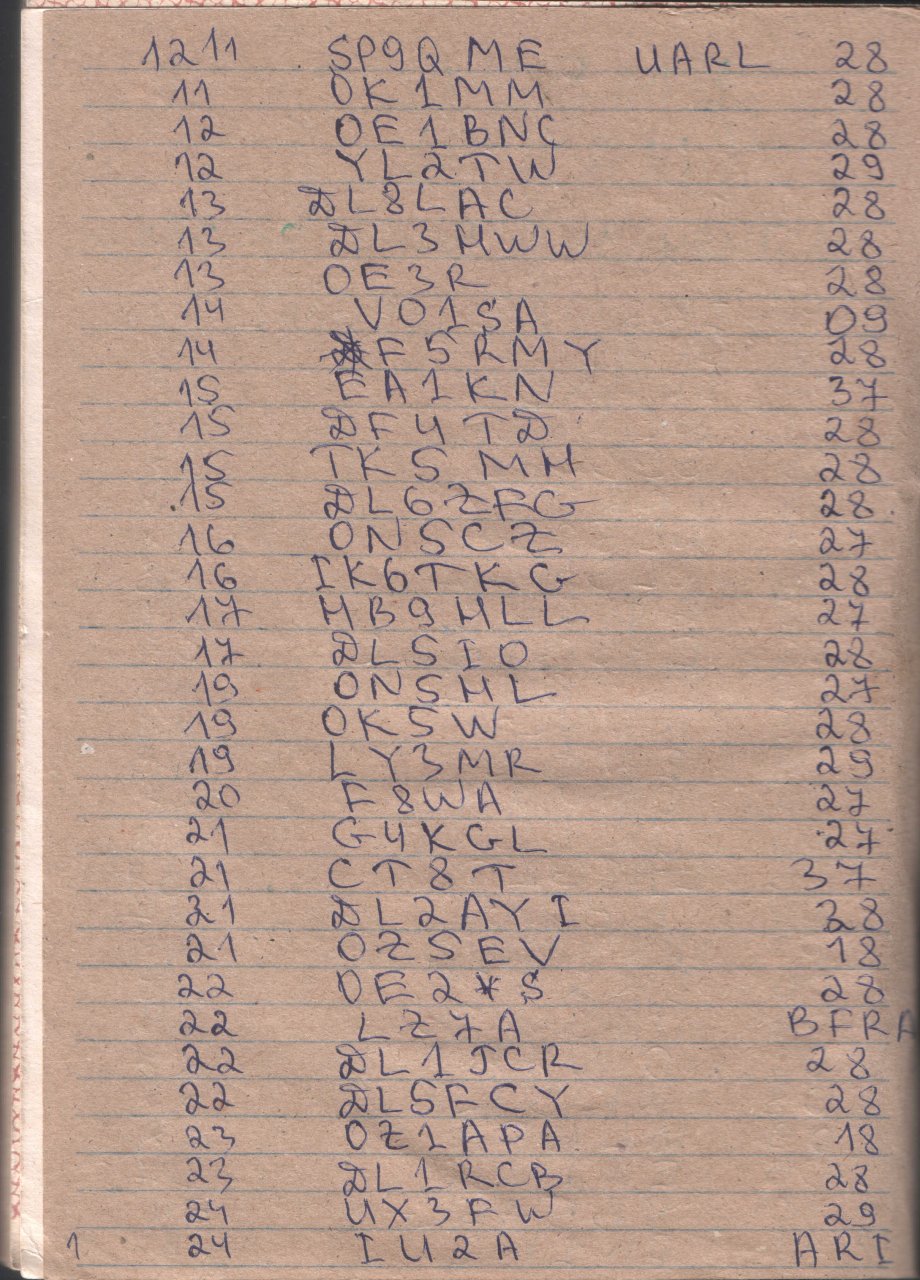 1211 SP9QME UARL 28
11 OK1MM 28
12 OE1BNC 28
12 YL2TW 29
13 DL8LAC 28
13 DL3HWW 28
13 OE3R 28
14 VO1SA 09
14 F5RMY 28
15 EA1KN 37
15 DF4TD 28
15 IK5MH 28
15 DL6ZFG 28
16 ON5CZ 27
16 IK6TKG 28
17 HB9HLL 27
17 DL5IO 28
19 ON5HL 27
19 OK5W 28
19 LY3MR 29
20 F8WA 27
21 G4KGL 27
21 CT8T 37
21 DL2AYI 28
21 OZ5EV 18
22 OE2*S 28
22 LZ7A BFRA
22 DL1JCR 28
22 DL5FCY 28
23 OZ1APA 18
23 DL1RCB 28
24 UX3FW 29
1 24 IU2A ARI